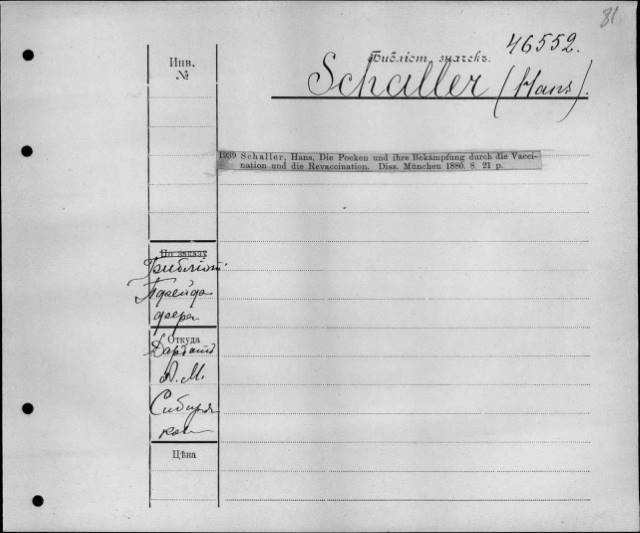 81
46552.
Библіот. значекъ.
Schaller (Hans).
Инв.
№
1939 Schaller, Hans, Die Pocken und ihre Bekämpfung durch die Vacci-
nation und die Revaccination. Diss. München 1880. 8. 21 p.
По заказу
Библіот.
Пфейфа
фера
Откуда
А. М.
Сибиря
кова
Цѣна